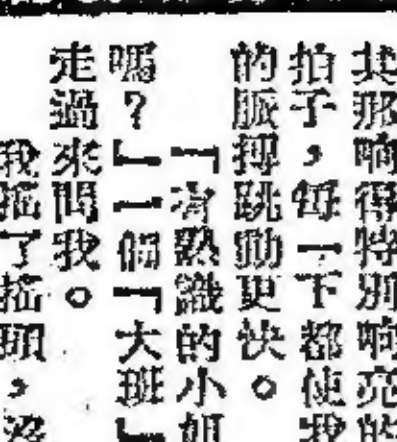 其那响得特別响亮的
拍子，每一下都使我
的脈搏跳動更快。
「有熟識的小姐
嗎？」一個「大班」
走過來問我。
我搖了搖頭，沒